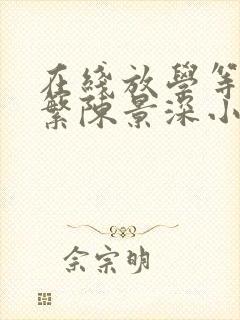 在綫放學等
繁陳景深小
佘宗明